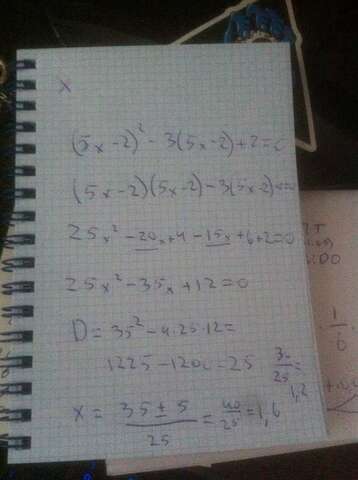 x
(5x-2)² - 3(5x-2)+2=0
(5x-2)(5x-2)-3(5x-2)
25x²-20x+4-15x+6+2=0
25x²-35x+12=0
D=35²-4·25·12=
1225-1200=25
x = (35±5)/25 = 40/25 = 1,6
30/25 =
1,2
1/6